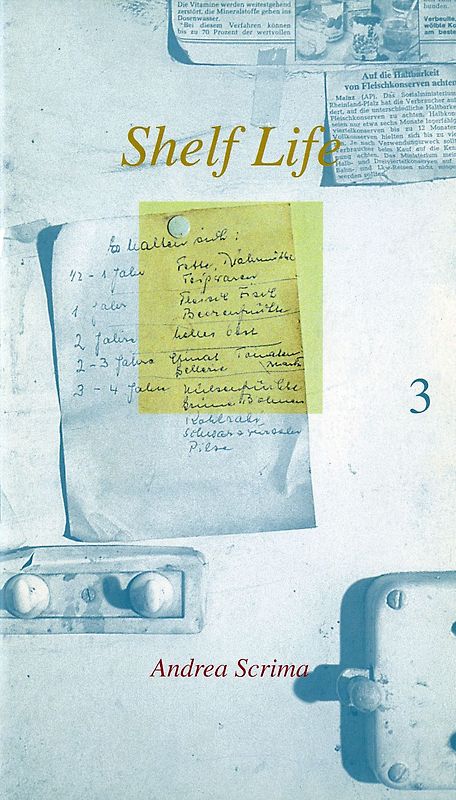 Die Vitamine werden weitestgehend
zerstört, die Mineralstoffe gehen ins
Dosenwasser.
"Bei diesem Verfahren können
bis zu 70 Prozent der wertvollen
bunden.
Verbeulte,
wölbte Ko
am beste
Auf die Haltbarkeit
von Fleischkonserven achten
Mainz (AP). Das Sozialministerium
Rheinland-Pfalz hat die Verbraucher auf
dert, auf die unterschiedliche Haltbark
Fleischkonserven zu achten. Halbkon
seien nur etwa sechs Monate lagerfähig
viertelkonserven bis zu 12 Monaten
Vollkonserven hielten sich bis zu vie
Je nach Verwendungszweck sollt
Verbraucher beim Kauf auf die Ken
nung achten. Das Ministerium mein
Halb- und Dreiviertelkonserven auf
Bahn- und Lkw-Reisen nicht mitge
werden sollten.
Shelf Life
Es halten sich:
1/2 - 1 Jahr Fette, Nährmittel
Teigwaren
1 Jahr Fleisch Fisch
Beerenfrüchte
2 Jahre helles Obst
2 - 3 Jahre Spinat Tomaten
Sellerie
3 - 4 Jahre Hülsenfrüchte
Grüne Bohnen
Kohlrabi
Schwarzwurzeln
Pilze
3
Andrea Scrima